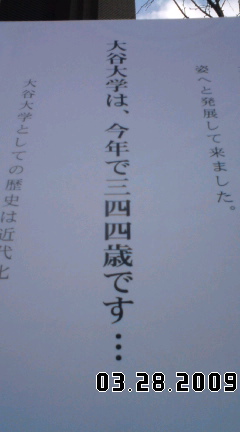 姿へと発展して来ました。
大谷大学は、今年で三四四歳です…
大谷大学としての歴史は近代化
03.28.2009